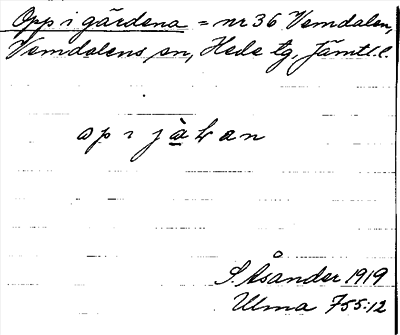 Opp i gärdena = nr 36 Vemdalen,
Vemdalens sn, Hede tg, Jämtl. l.
S. Åsander 1919
Ulma 755:12